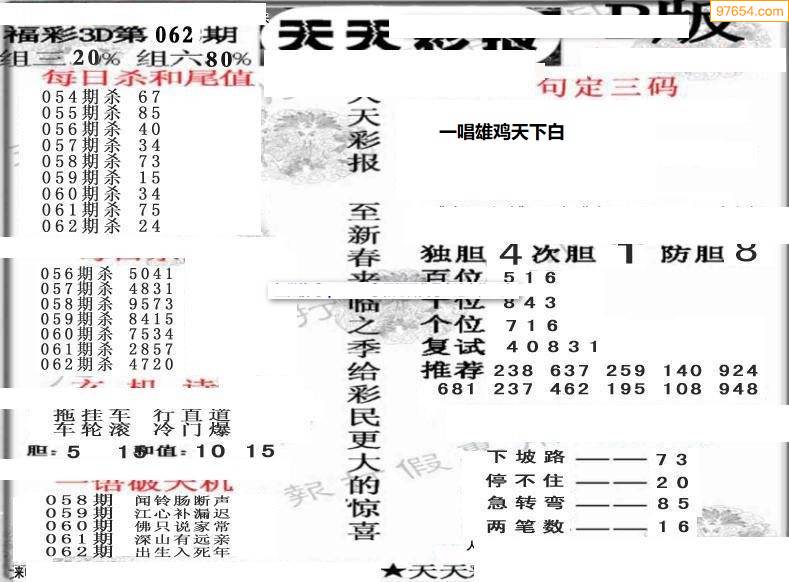 97654.com
福彩3D第062期
天天彩报
B版
组三20% 组六80%
每日杀和尾值
054期杀 67
055期杀 85
056期杀 40
057期杀 34
058期杀 73
059期杀 15
060期杀 34
061期杀 75
062期杀 24
056期杀 5041
057期杀 4831
058期杀 9573
059期杀 8415
060期杀 7534
061期杀 2857
062期杀 4720
玄机诗
拖挂车 行直道
车轮滚 冷门爆
胆:5 15 和值:10 15
一语破天机
058期 闻铃肠断声
059期 江心补漏迟
060期 佛只说家常
061期 深山有远亲
062期 出生入死年
天彩报
至新春来临之季给彩民更大的惊喜
句定三码
一唱雄鸡天下白
独胆4次胆1防胆8
百位 516
十位 843
个位 716
复试 40831
推荐 238 637 259 140 924
681 237 462 195 108 948
下坡路——73
停不住——20
急转弯——85
两笔数——16
★天天